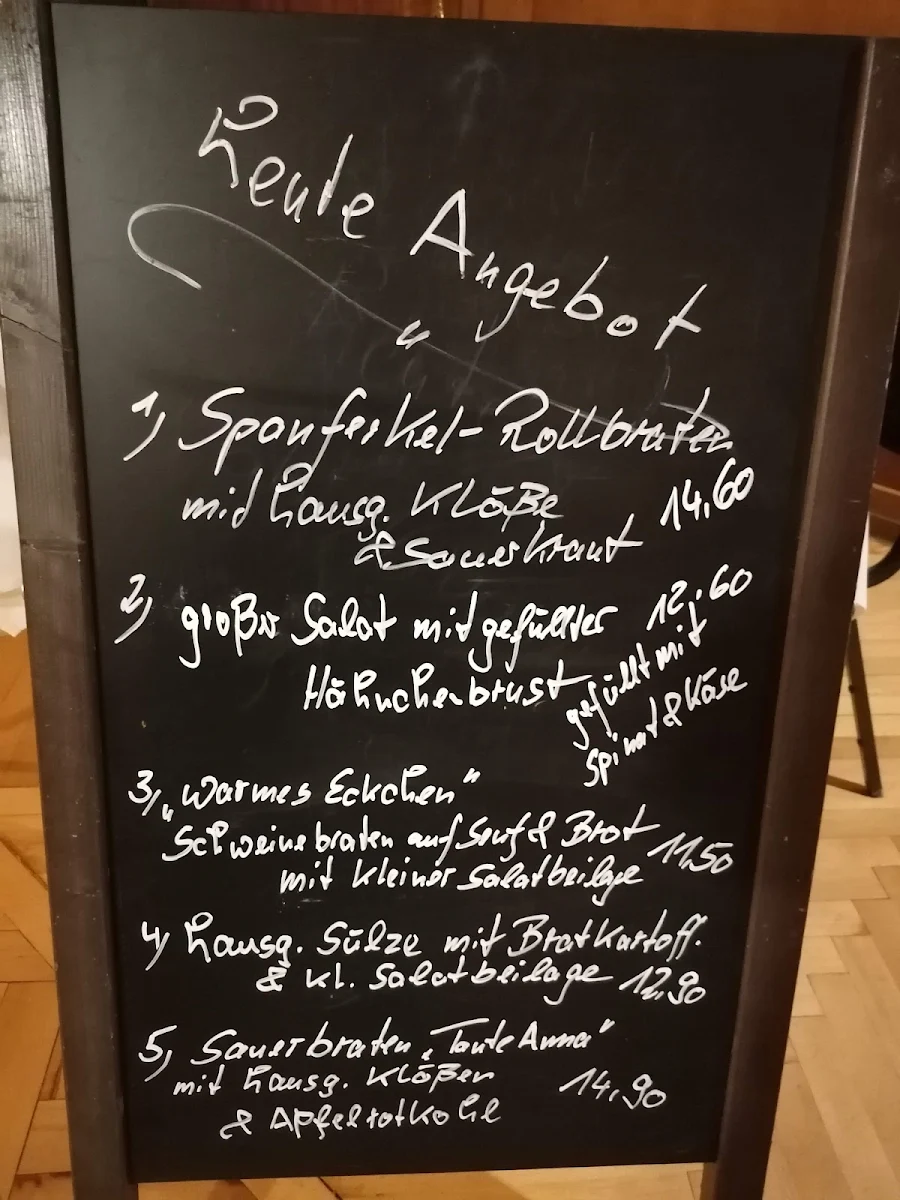 Heute Angebot
"
1, Spanferkel-Rollbraten
mit hausg. Klöße 14,60
& Sauerkraut
2, großer Salat mit gefüllter 12,60
Hähnchenbrust
gefüllt mit
Spinat & Käse
3, „Warmes Eckchen"
Schweinebraten auf Senf & Brot
mit kleiner Salatbeilage 11,50
4, hausg. Sülze mit Bratkartoff.
& kl. Salatbeilage 12,90
5, Sauerbraten „Tante Anna"
mit hausg. Klößen 14,90
& Apfelrotkohl